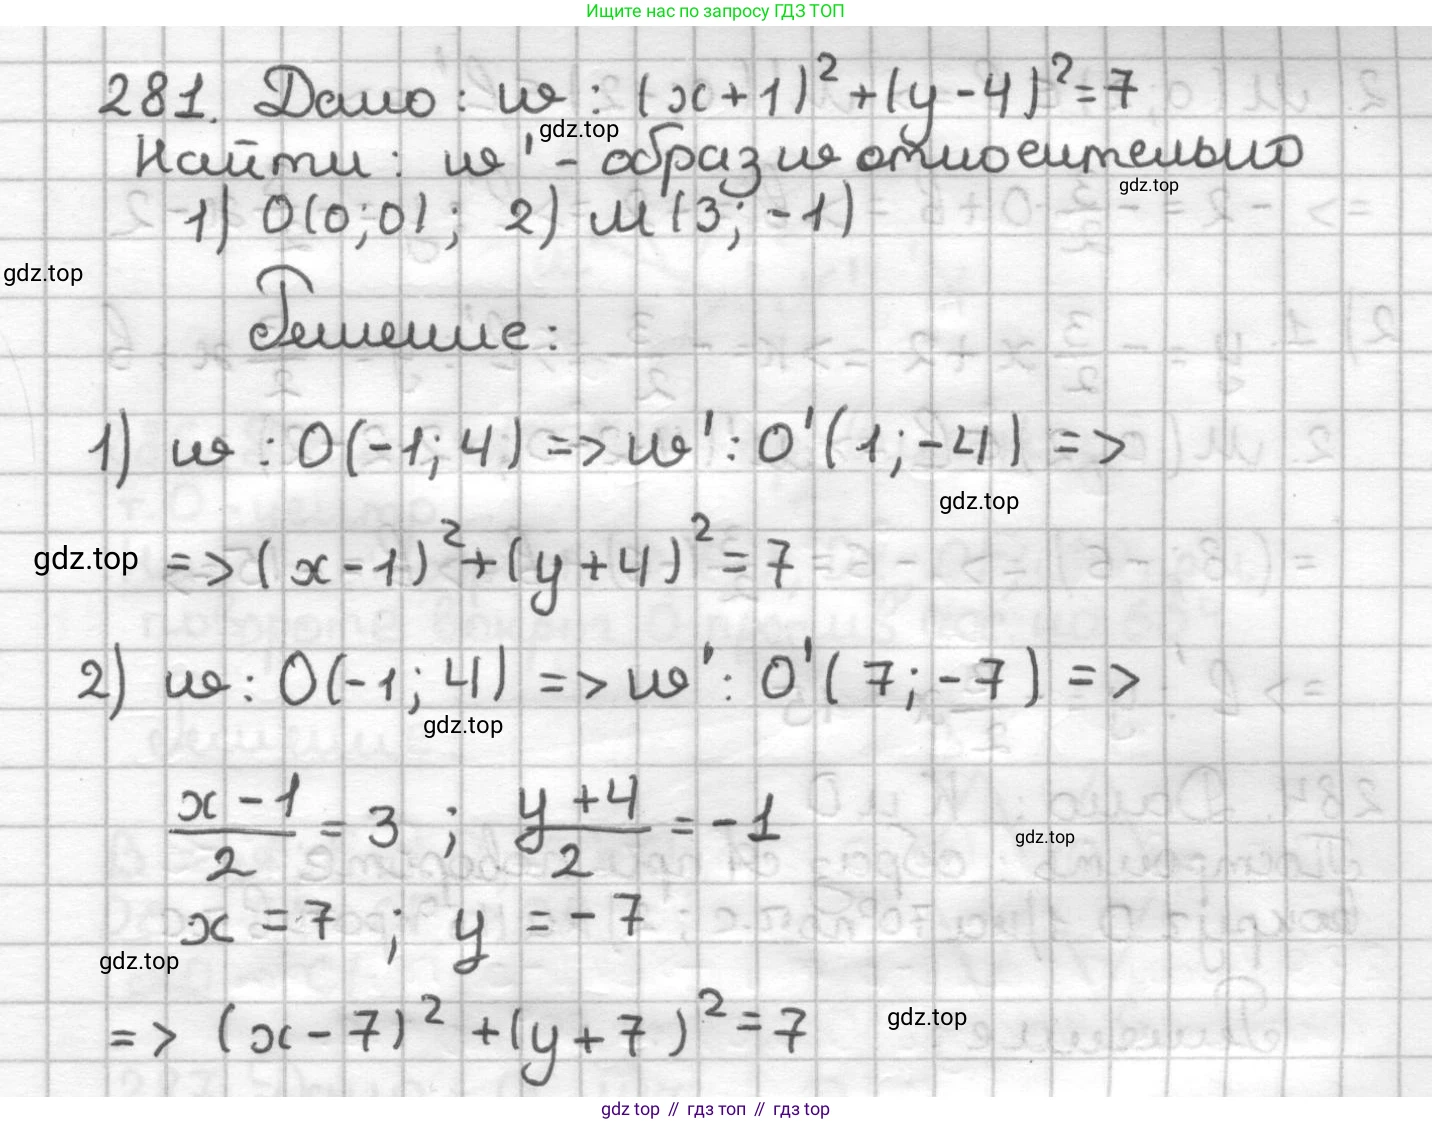 Ищите нас по запросу ГДЗ ТОП
281. Дано: ω: (x+1)² + (y-4)² = 7
gdz.top
Найти: ω' - образ ω относительно
gdz.top
1) O(0;0); 2) M(3; -1)
gdz.top
Решение:
1) ω: O(-1; 4) => ω': O'(1; -4) =>
gdz.top
gdz.top => (x-1)² + (y+4)² = 7
2) ω: O(-1; 4) => ω': O'(7; -7) =>
gdz.top
(x-1)/2 = 3 ; (y+4)/2 = -1
gdz.top
x = 7 ; y = -7
gdz.top
=> (x-7)² + (y+7)² = 7
gdz.top
gdz top // гдз топ // gdz top